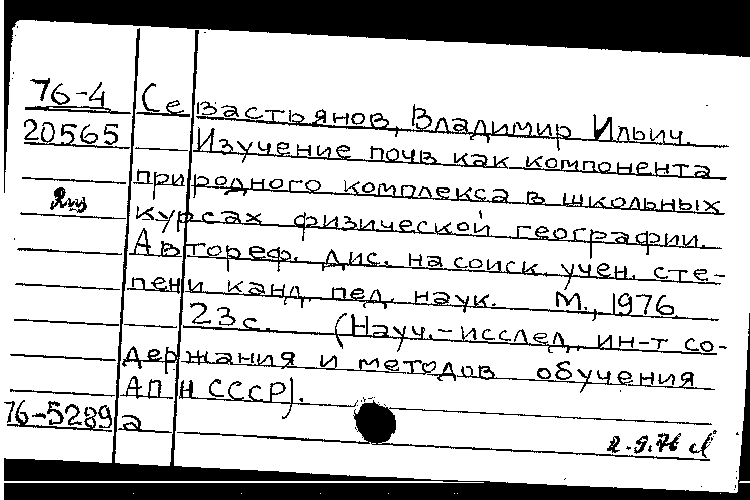 76-4 Севастьянов, Владимир Ильич.
20565 Изучение почв как компонента
природного комплекса в школьных
курсах физической географии.
Автореф. дис. на соиск. учен. сте-
пени канд. пед. наук. М., 1976.
23 с. (Науч.-исслед. ин-т со-
держания и методов обучения
АПН СССР).
76-5289а
2.9.76